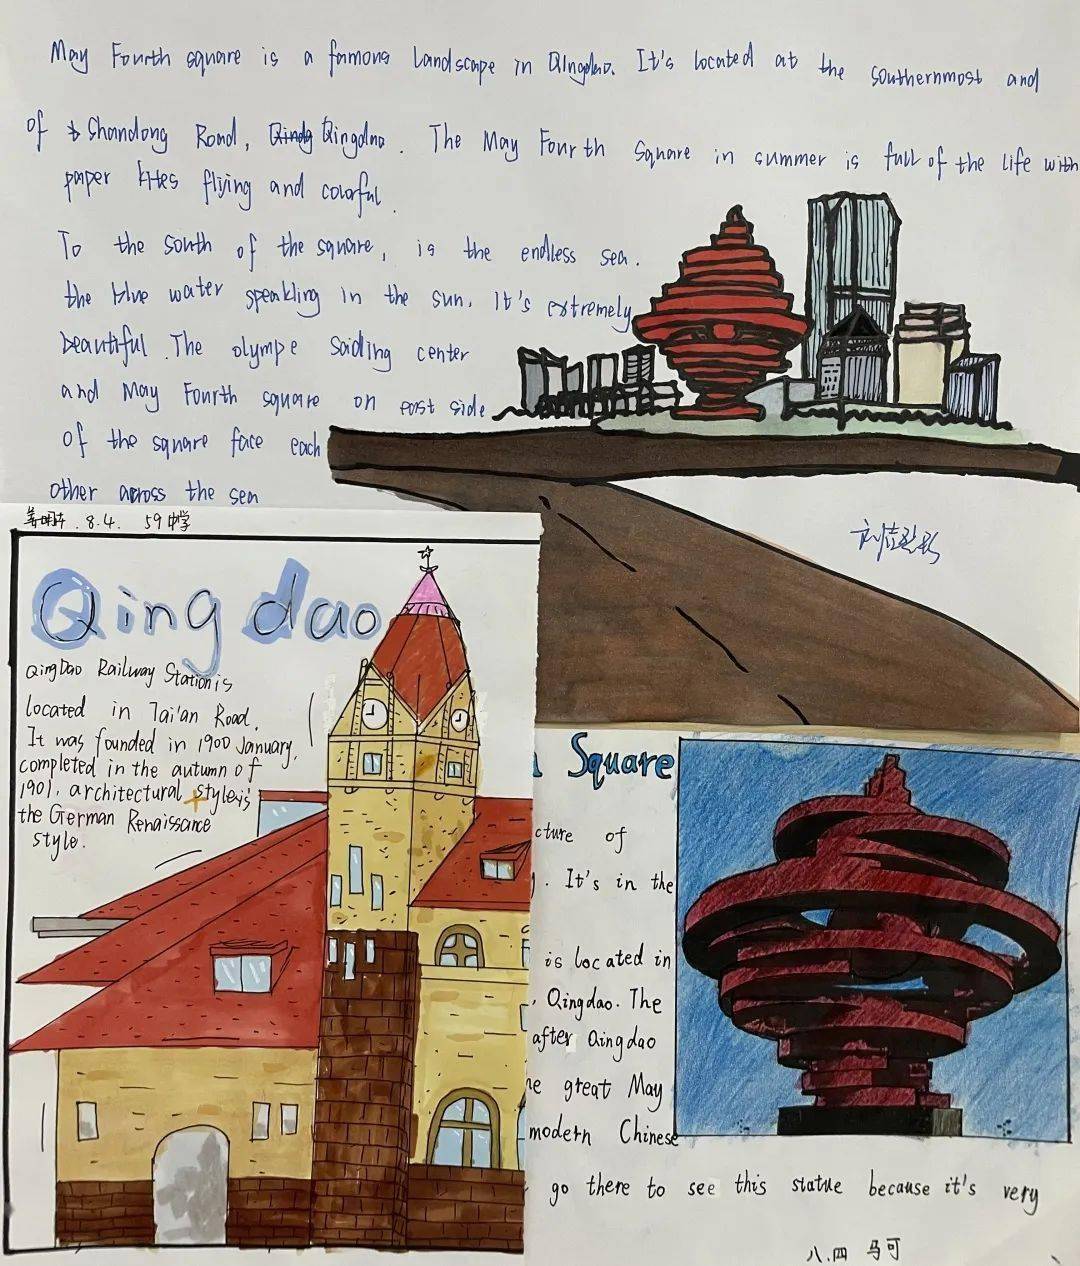 May Fourth square is a famous landscape in Qingdao. It's located at the southernmost and
of Shandong Road, Qingdao. The May Fourth Square in summer is full of the life with
paper kites flying and colorful.
To the south of the square, is the endless sea.
the blue water speakling in the sun. It's extremely
beautiful. The olympe Saiding center
and May Fourth square on east side
of the square face each
other across the sea
8.4. 59中学
Qingdao
QingDao Railway Station is
located in Tai'an Road.
It was founded in 1900 January,
completed in the autumn of
1901, architectural style is
the German Renaissance
style.
Square
cture of
. It's in the
is located in
, Qingdao. The
after Qingdao
he great May
modern Chinese
go there to see this statue because it's very
八.四 马可